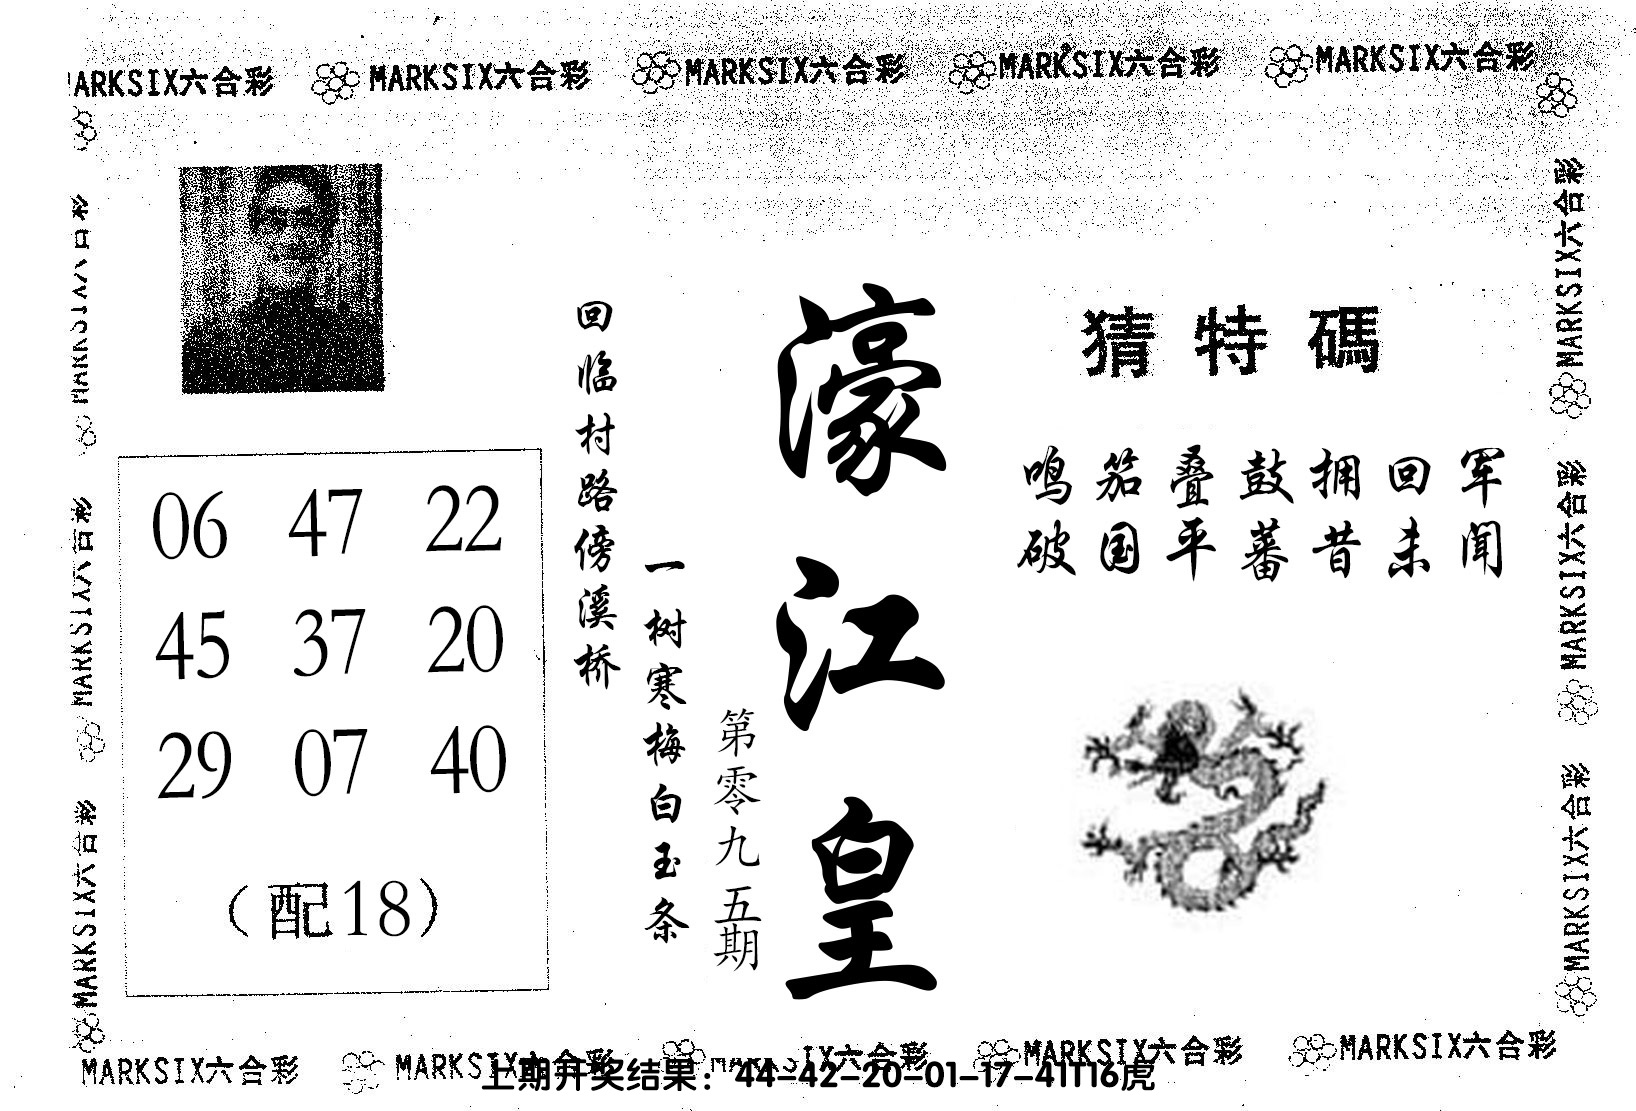 MARKSIX六合彩 MARKSIX六合彩 MARKSIX六合彩 MARKSIX六合彩 MARKSIX六合彩
猜特碼
鸣笳叠鼓拥回军
破国平蕃昔未闻
濠江皇
第零九五期
一树寒梅白玉条
回临村路傍溪桥
06 47 22
45 37 20
29 07 40
（配18）
MARKSIX六合彩
MARKSIX六合彩
MARKSIX六合彩
MARKSIX六合彩
MARKSIX六合彩
MARKSIX六合彩
MARKSIX六合彩 MARKSIX六合彩 IX六合彩 MARKSIX六合彩 MARKSIX六合彩
上期开奖结果：44-42-20-01-17-41T16虎